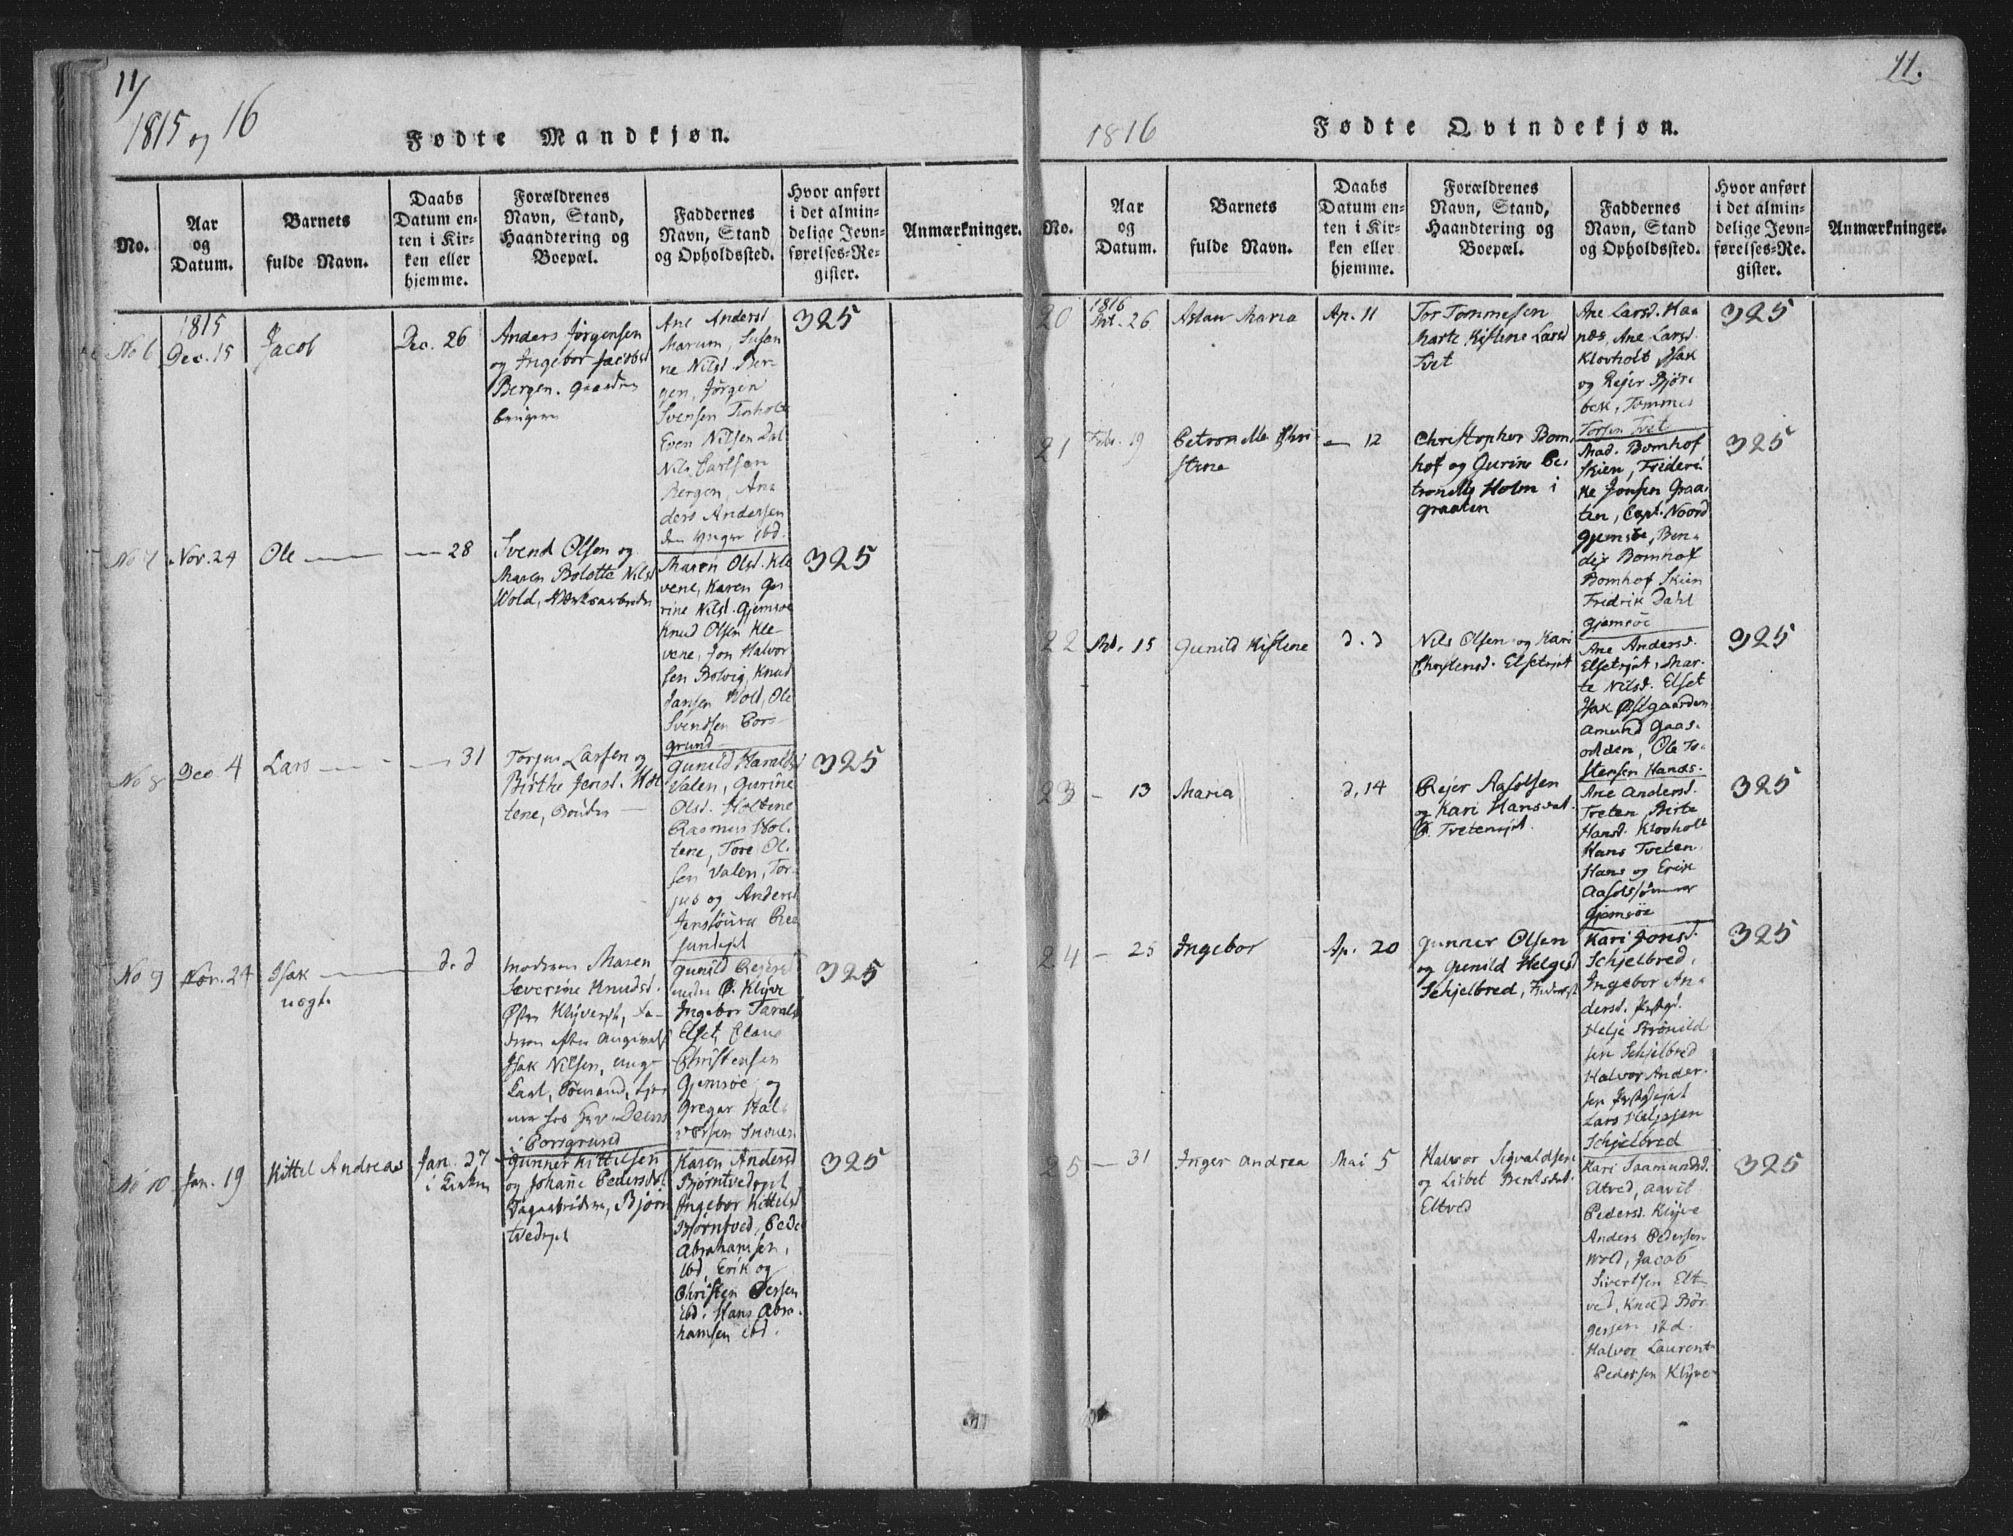 11/
1815 og 16
Fødte Mandkjøn.
No.
Aar
og
Datum.
Barnets
fulde Navn.
Daabs
Datum en-
ten i Kir-
ken eller
hjemme.
Forældrenes
Navn, Stand,
Haandtering og
Boepæl.
Faddernes
Navn, Stand
og Opholdssted.
Hvor anført
i det almin-
delige Jevn-
førelses-Re-
gister.
Anmærkninger.
No 6
1815
Dec. 15
Jacob
Dec. 26
Anders Jørgensen
og Ingebor Jacobsd
Bergen. Gaard
Ane Andersd
Marum, Susan
ne Nilsd. Ber-
gen, Jørgen
Svensen
Even Nilsen Dal
Nils Carlsen
Bergen, An-
ders Andersen
den Yngre ibd.
325
No 7
Nov. 24
Ole
28
Svend Olsen og
Maren Bolotte Nilsd
Wold, Værksarbeider
Maren Olsd. Kle
vene, Karen Gu-
rine Nilsd. Gjemsøe
Knud Olsen Kle-
vene, Jon Halvor
sen Bolvig, Knud
Jansen Wold, Ole
Svendsen Pors-
grund
325
No 8
Dec 4
Lars
31
Torjus Larsen og
Birthe Jensd. Hol
tene, Bønder
Gunild Haralds
Valen, Gurine
Olsd. Holtene
Rasmus Hol-
tene, Tore Ol-
sen Valen, Tor-
jus og Anders
Jenssønner
325
No 9
Nov. 24
Isak
uægt.
d. d
Moderen Maren
Severine Knudsd.
Isak Nilsen, ung-
Karl,
i Porsgrund
Gunild Rejersd
Klyve
Ingebor Taralsd
Elset, Claus
Christensen
Gjemsøe og
Gregar Hal-
vorsen
325
No 10
Jan. 19
Kittel Andreas
Jan. 27
i Kirken
Gunner Kittilsen
og Johane Pedersdat
Bjørn
tvedejet
Karen Andersd
Bjørntvedejet
Ingebor Kittelsd
Bjørntved, Peder
Abrahamsen,
ibd, Erik og
Christen Persen
ibd. Hans Abra-
hamsen ibd.
325
11.
1816
Fødte Qvindekjøn.
No.
Aar
og
Datum.
Barnets
fulde Navn.
Daabs
Datum en-
ten i Kir-
ken eller
hjemme.
Forældrenes
Navn, Stand,
Haandtering og
Boepæl.
Faddernes
Navn, Stand
og Opholdssted.
Hvor anført
i det almin-
delige Jevn-
førelses-Re-
gister.
Anmærkninger.
20
1816
Mt. 26
Aslau Maria
Ap. 11
Tor Tommesen
Marte Kistene Larsd
Tvet
Ane Larsd. Haa
næs, Ane Larsd.
Klovholt Isak
og Rejer Bjørn
bek, Tommes
Torsen Tvet
325
21
Febr. 19
Petronelle Chri
stine
12
Christopher Bom
hof og Gurine Pe-
tronelle Holm i
Graaten
Mad. Bomhof
Skien, Frideri
ke Jonsen Graa-
ten, Capt. Noord
Gjemsøe, Ben-
dix Bomhof
Bomhof Skien
Fridrik Dahl
Gjemsøe
325
22
Mt. 15
Gunild Kistene
d. d
Nils Olsen og Kari
Christensd. Elsetejet
Ane Andersd.
Elsetejet, Mar-
te Nilsd. Elset
Isak Østgaarden
Amund Gaas-
odden, Ole To-
stensen Hanes-
325
23
13
Maria
d. 14
Rejer Aasolsen
og Kari Hansdat.
Ø. Tvetenejet.
Ane Andersd.
Tveten, Birte
Hansd. Klovholt
Hans Tveten
Hans og Erik
Aasolssønner
Gjemsøe
325
24
25
Ingebor
Ap. 20
Gunner Olsen
og Gunild Helgesd
Schjelbred,
Kari Jonsd.
Schjelbred,
Ingebor An-
dersd.
Helje Brønild
sen Schjelbred
Halvor Ander-
sen
Lars Heljesen
Schjelbred
325
25
31
Inger Andrea
Mai 5
Halvor Sigvaldsen
og Lisbet Bentsdat.
Eltved
Kari Saamundsd.
Eltved, Aavil
Pedersd. Klyve
Anders Pedersen
Wold, Jacob
Sivertsen Elt-
ved, Knud Bør-
gersen ibd.
Halvor Laurent-
Pedersen Klyve
325